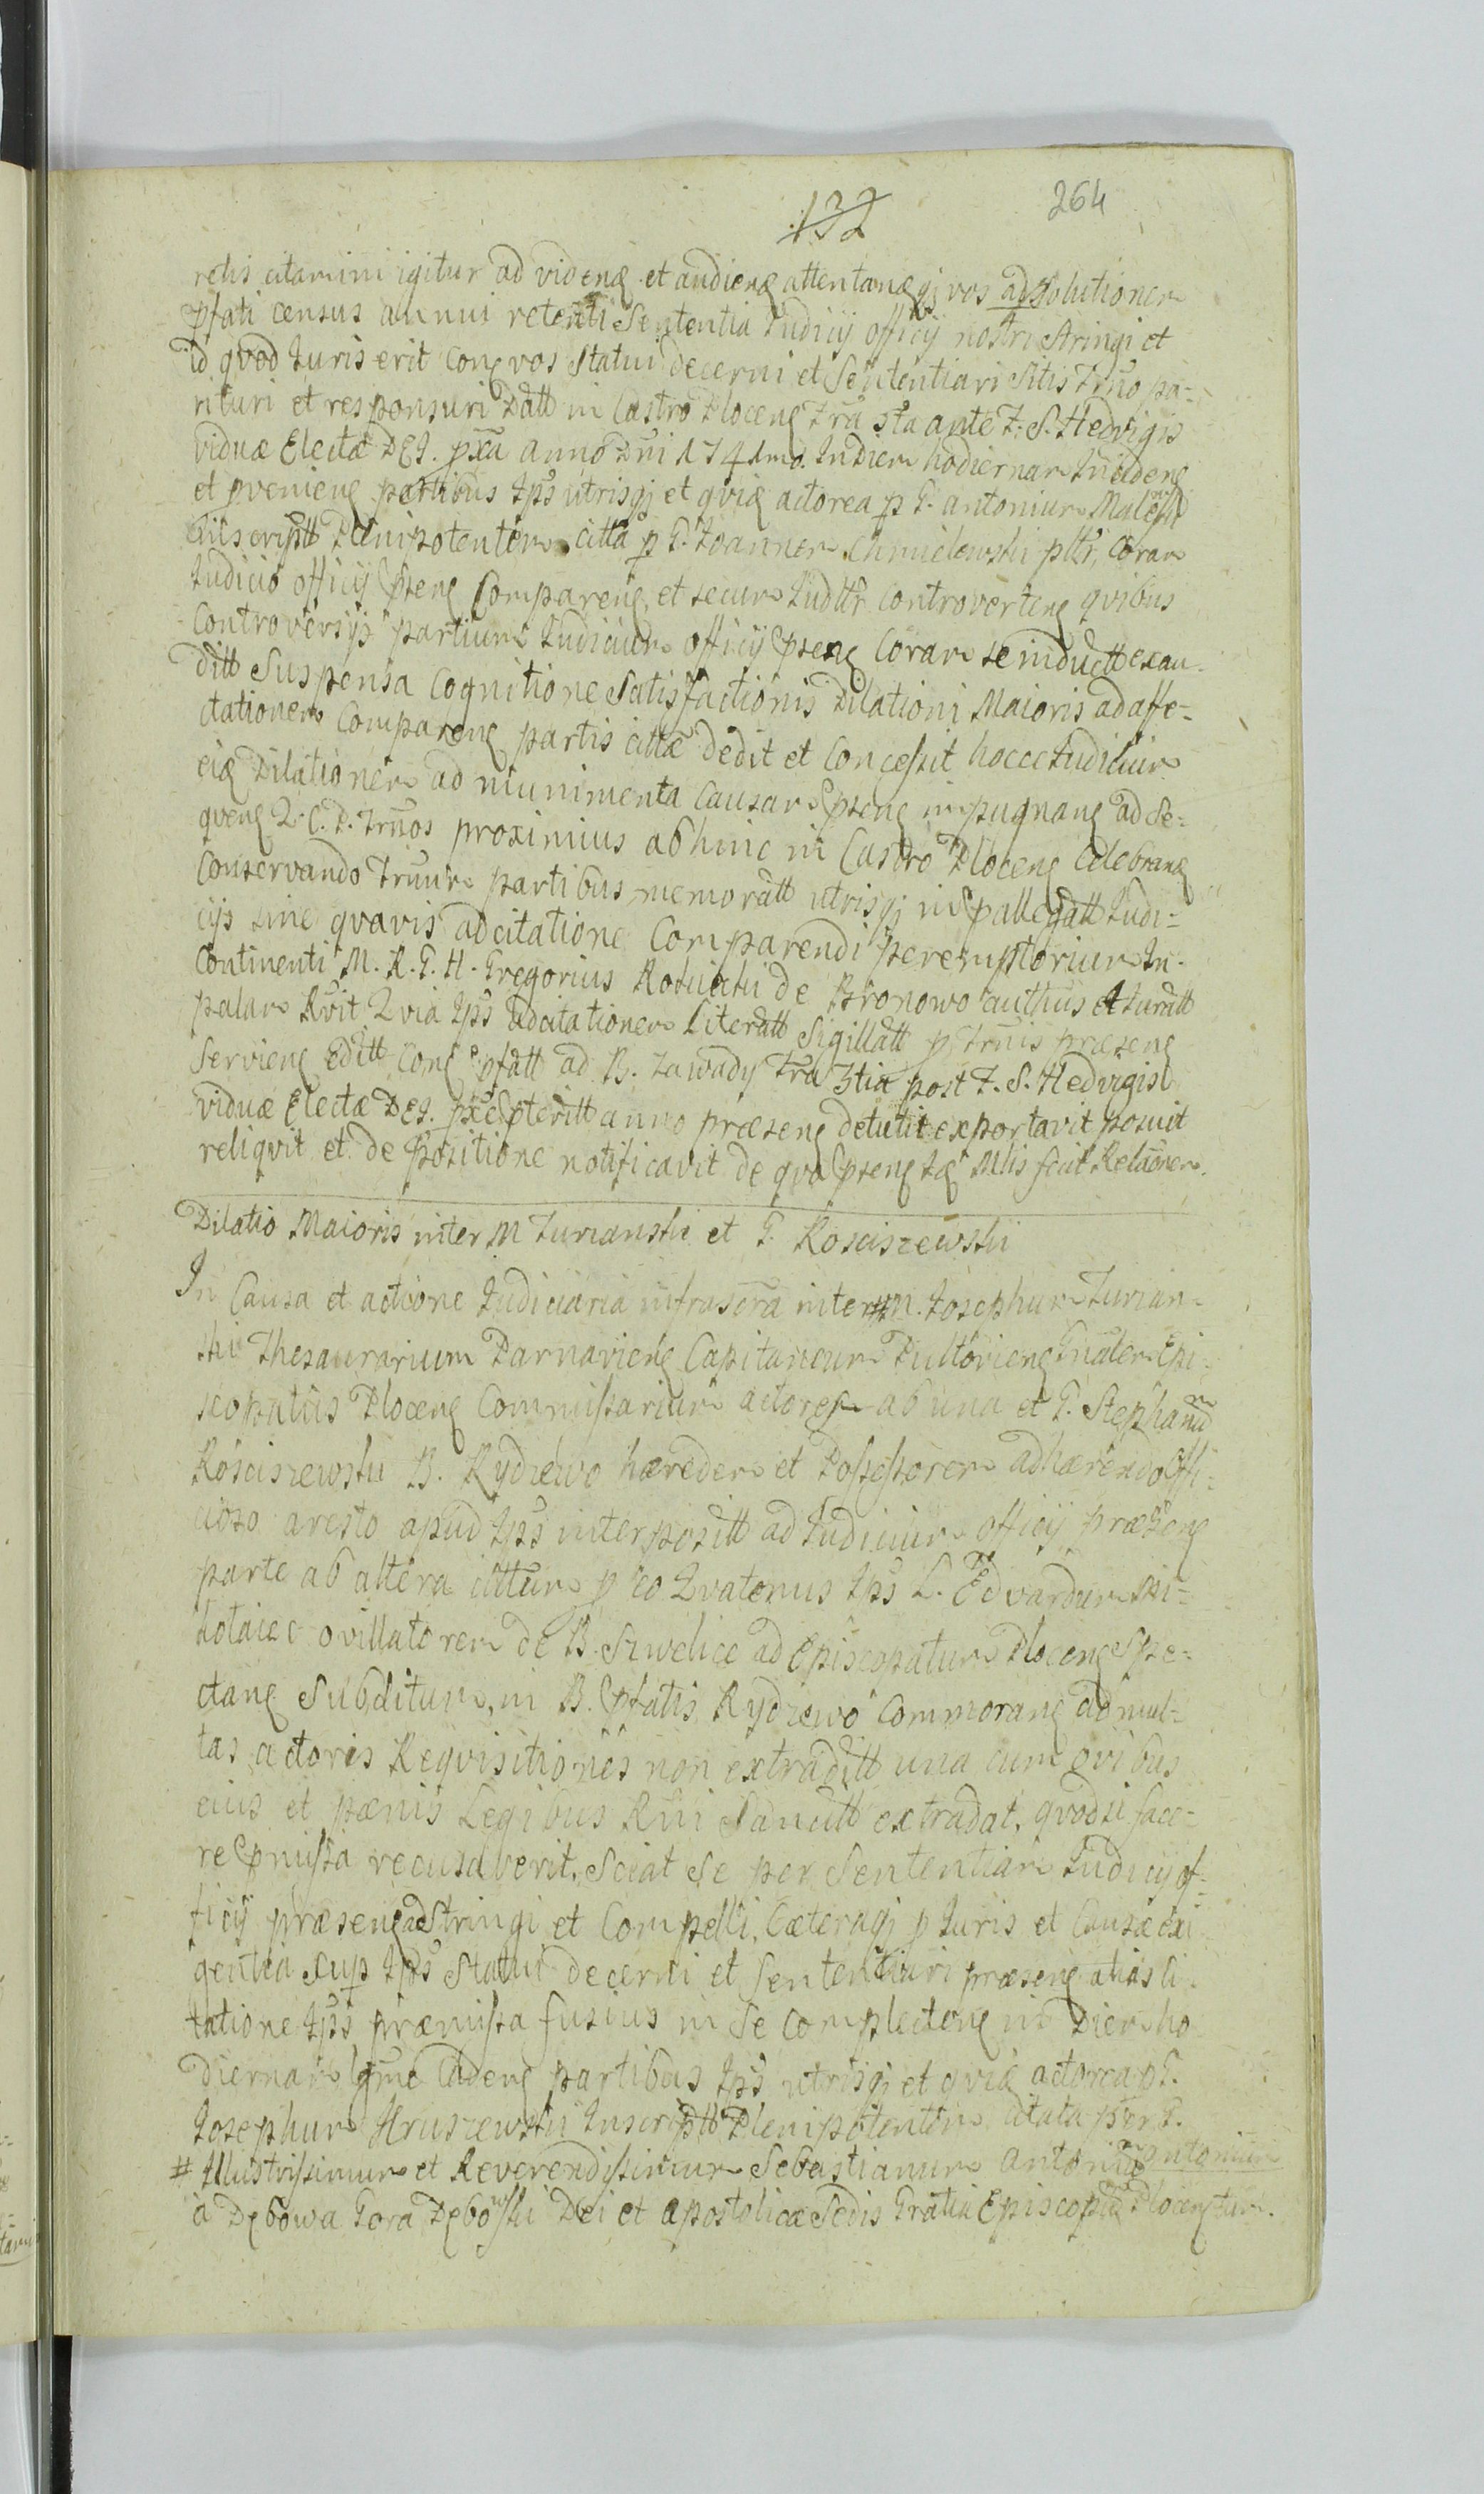 132 264
retis citamini igitur ad videng et audieng attentaneqj vos ad solutionem
pfati census annui retenti Sententia Judicij officij nostri stringi et
id qvod Juris erit Cong vos Statui decerni et Sententiari sitis Trno pa-
rituri et responsuri Datt in Castro Ploceng Fra 5ta ante F. S. Hedvigis
viduæ Electæ DEI. pxa anno Dni 1741mo. In Diem hodiernam Incideng
et pvenieng partibus Ips utrisqj et qvia actorea p G. antonium
Inscriptt Plenipotentem citta p G. Joannem Chmielewski pltr, Coram
Judicio officij pseng Compareng, et secum Judltr controverteng qvibus
Controversijs partium Judicium officij pseng Coram se inductt exau-
ditt Suspensa Cognitione Satisfactionis Dilationi Maioris ad affe-
ctationem Compareng partis cittæ dedit et Concessit hocce Judicium
eiq Dilationem ad munimenta Causam pseng impugnang ad se-
qveng Q. C. P. Trnos proximius abhinc in Castro Ploceng Celebrang
Conservando Trnum partibus memoratt utrisqj in pallegatt Judi-
cijs sine qvavis adcitatione Comparendi peremptorium In-
Continenti M. R. G. H. Gregorius de Bronowo authus et Juratt
palam Rvit Qvia Ips adcitationem Literatt Sigillatt p Trnis præseng
Servieng Editt Cong pfatt ad B. Zawady Fra 3tia post F. S. Hedvigis
viduæ Electæ DEI. pxe pteritt anno præseng detulit exportavit posuit
reliqvit et de Positione notificavit de qvo pseng Mlis fecit Relaonem.
Dilatio Maioris inter M Zurianski et G. Kosciszewski
In Causa et actione Judiciaria infrascra inter M. Josephum Zurian-
ski Thesaurarium Parnavieng Capitaneum Pultovieng Gnalem Epi-
scopatus Ploceng Commissarium actorem ab una et G. Stephanum
Kosciszewski B. Rydzewo hæredem et Possessorem adhærendo Offi-
cioso aresto apud Ips interpositt ad Judicium officij præseng
parte ab altera cittum p eo Qvatenus Ips L. Edvardum Mi-
kolaiec ovillatorem de B. Szwelice ad Episcopatum Ploceng Spe-
ctang Subditum, in B. pfatis Rydzewo Commorang ad mul-
tas actoris Reqvisitiones non extraditt una cum ovibus
eius et pænis Legibus Rni Sancitt extradat, qvodsi face-
re pmissa recusaverit, Sciat se per Sententiam Judicij of-
ficij præseng adstringi et Compelli, Cæteraqj p Juris et Causæ exi-
gentia sup Ips Statui decerni et Sententiari præseng atias Ci-
tatione Ips præmissa fusius in Se Complecteng in Diem ho
diernam Cadeng partibus Ips utrisqj et qvia actorea p G.
Josephum Hruszewski Inscriptt Plenipotentem citata per G.
# Illustrissimum et Reverendissimum Sebastianum Antonium antonium
à Dębowa Gora Dębowski Dei et apostolicæ Sedis Gratia Episcopum Plocens tum.